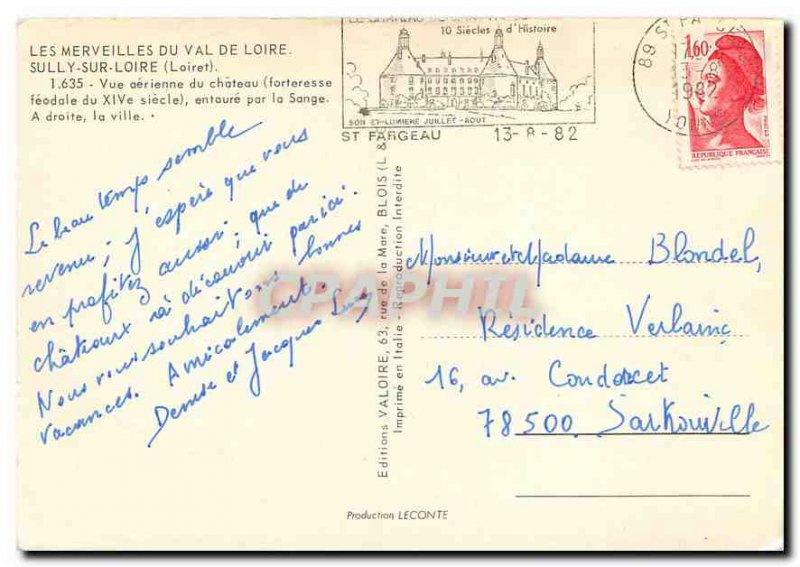 LES MERVEILLES DU VAL DE LOIRE.
SULLY-SUR-LOIRE (Loiret).
1.635 - Vue aérienne du château (forteresse
féodale du XIVe siècle), entouré par la Sange.
A droite, la ville.
10 Siècles d'Histoire
SON ET LUMIERE JUILLET-AOUT
ST FARGEAU 13-8-82
89 ST FA
1982
YONNE
1,60
REPUBLIQUE FRANÇAISE
Le beau temps semble
revenu ; J'espère que vous
en profitez aussi ; que de
châteaux à découvrir par ici.
Nous vous souhaitons bonnes
vacances. Amicalement.
Denise et Jacques
Editions VALOIRE, 63, rue de la Mare, BLOIS (L &
Imprimé en Italie - Reproduction Interdite
CPAPHIL
Monsieur et Madame Blondel,
Résidence Verlaine
16, av. Condorcet
78500 Sartrouville
Production LECONTE